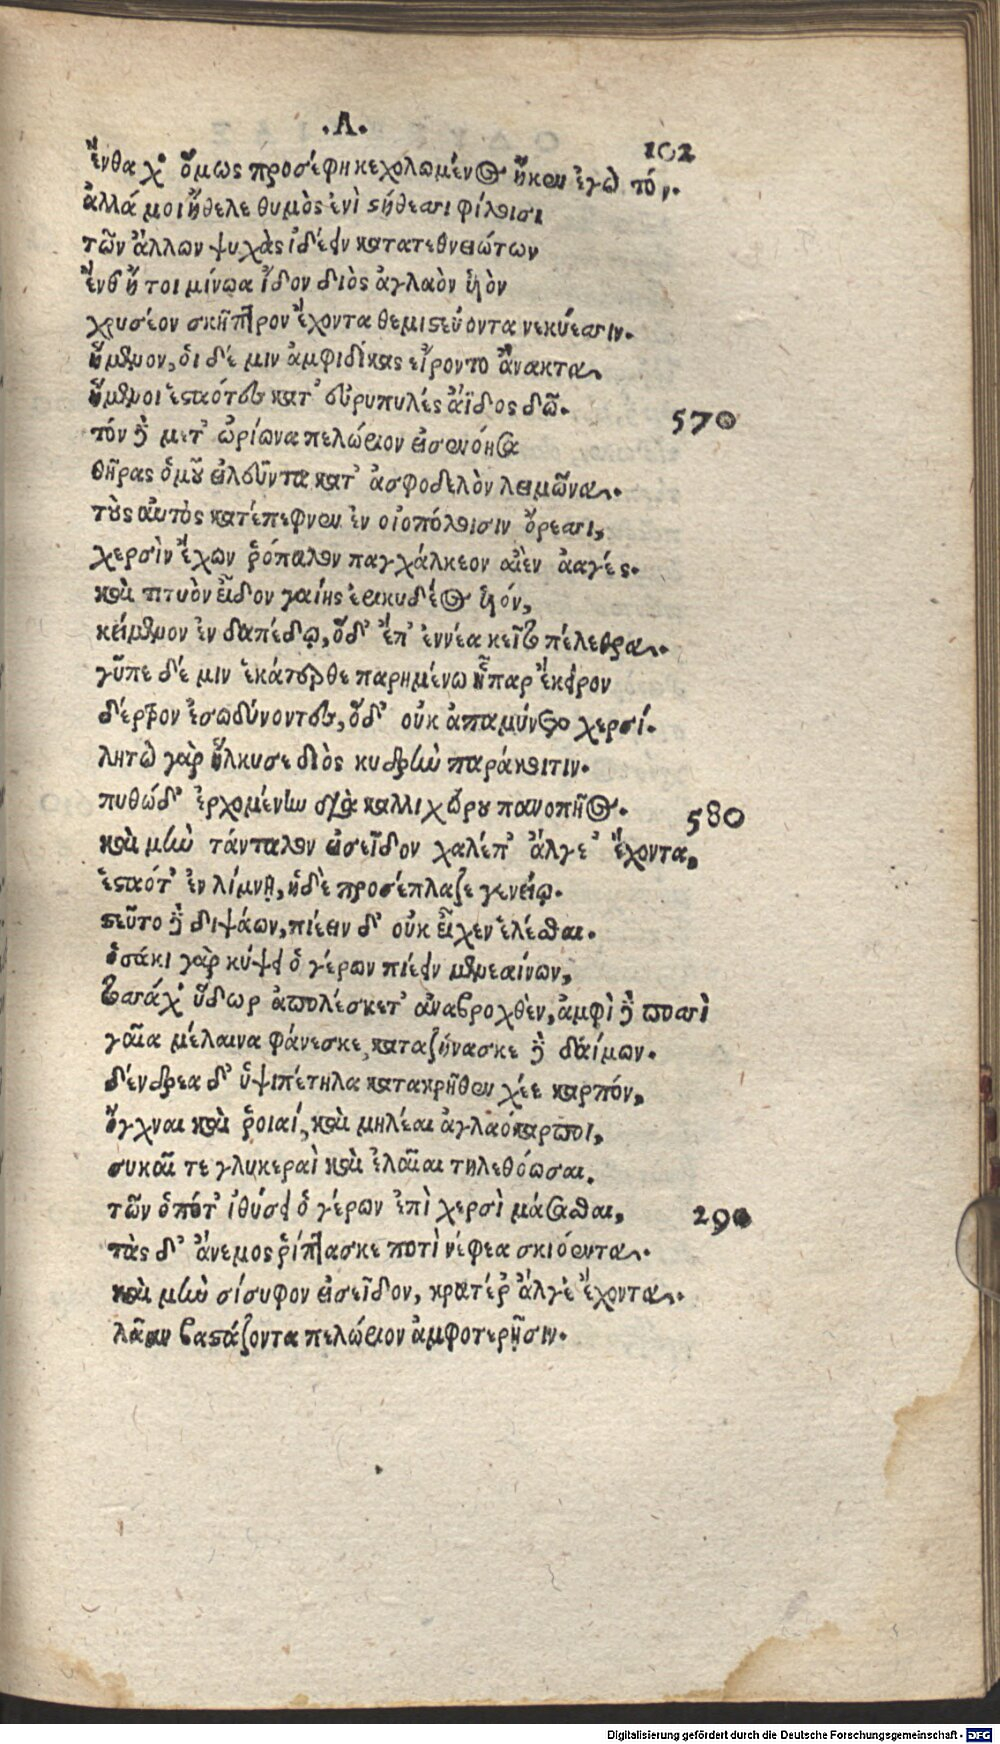 .Λ.
102
ἔνθα χ' ὅμως προσέφη κεχολωμένος ἤ κεν ἐγὼ τόν.
ἀλλά μοι ἤθελε θυμὸς ἐνὶ στήθεσσι φίλοισι
τῶν ἄλλων ψυχὰς ἰδέειν κατατεθνειώτων
ἔνθ' ἤτοι μίνωα ἴδον διὸς ἀγλαὸν ὑιὸν
χρυσέον σκῆπτρον ἔχοντα θεμιστεύοντα νεκύεσσιν.
ἥμενον, ὁι δέ μιν ἀμφι δίκας εἴροντο ἄνακτα,
ἥμενοι ἑσταότες κατ' εὐρυπυλὲς ἄϊδος δῶ.
570
τὸν δὲ μετ' ὠρίωνα πελώριον εἰσενόησα
θῆρας ὁμοῦ εἰλεῦντα κατ' ἀσφοδελὸν λειμῶνα.
τοὺς αὐτὸς κατέπεφνεν ἐν οἰοπόλοισιν ὄρεσσι,
χερσὶν ἔχων ῥόπαλον παγχάλκεον αἰὲν ἀαγές.
καὶ τιτυὸν εἶδον γαίης ἐρικυδέος ὑιόν,
κείμενον ἐν δαπέδῳ, ὅδ' ἐπ' ἐννέα κεῖτο πέλεθρα.
γῦπε δέ μιν ἑκάτερθε παρημένω ἧπαρ ἔκειρον
δέρτρον ἔσω δύνοντες, ὅδ' οὐκ ἀπαμύνετο χερσί.
λητὼ γὰρ ἥλκυσε διὸς κυδρὴν παράκοιτιν.
πυθώδ' ἐρχομένην διὰ καλλιχόρου πανοπῆος.
580
καὶ μὴν τάνταλον εἰσεῖδον χαλέπ' ἄλγε' ἔχοντα,
ἑσταότ' ἐν λίμνῃ, ἡδὲ προσέπλαζε γενείῳ.
στεῦτο δὲ διψάων, πιέειν δ' οὐκ εἶχεν ἑλέσθαι.
ὁσάκι γὰρ κύψει ὁ γέρων πιέειν μενεαίνων,
τοσσάχ' ὕδωρ ἀπολέσκετ' ἀναβροχθὲν, ἀμφὶ δὲ ποσσὶ
γαῖα μέλαινα φάνεσκε, καταζήνασκε δὲ δαίμων.
δένδρεα δ' ὑψιπέτηλα κατακρῆθεν χέε καρπόν,
ὄγχναι καὶ ῥοιαί, καὶ μηλέαι ἀγλαόκαρποι,
συκαῖ τε γλυκεραὶ καὶ ἐλαῖαι τηλεθόωσαι.
τῶν ὁπότ' ἰθύσει ὁ γέρων ἐπὶ χερσὶ μάσασθαι,
290
τὰς δ' ἄνεμος ῥίπτασκε ποτὶ νέφεα σκιόεντα.
καὶ μὴν σίσυφον εἰσεῖδον, κρατέρ' ἄλγε' ἔχοντα.
λᾶαν βαστάζοντα πελώριον ἀμφοτερῇσιν.
Digitalisierung gefördert durch die Deutsche Forschungsgemeinschaft - DFG